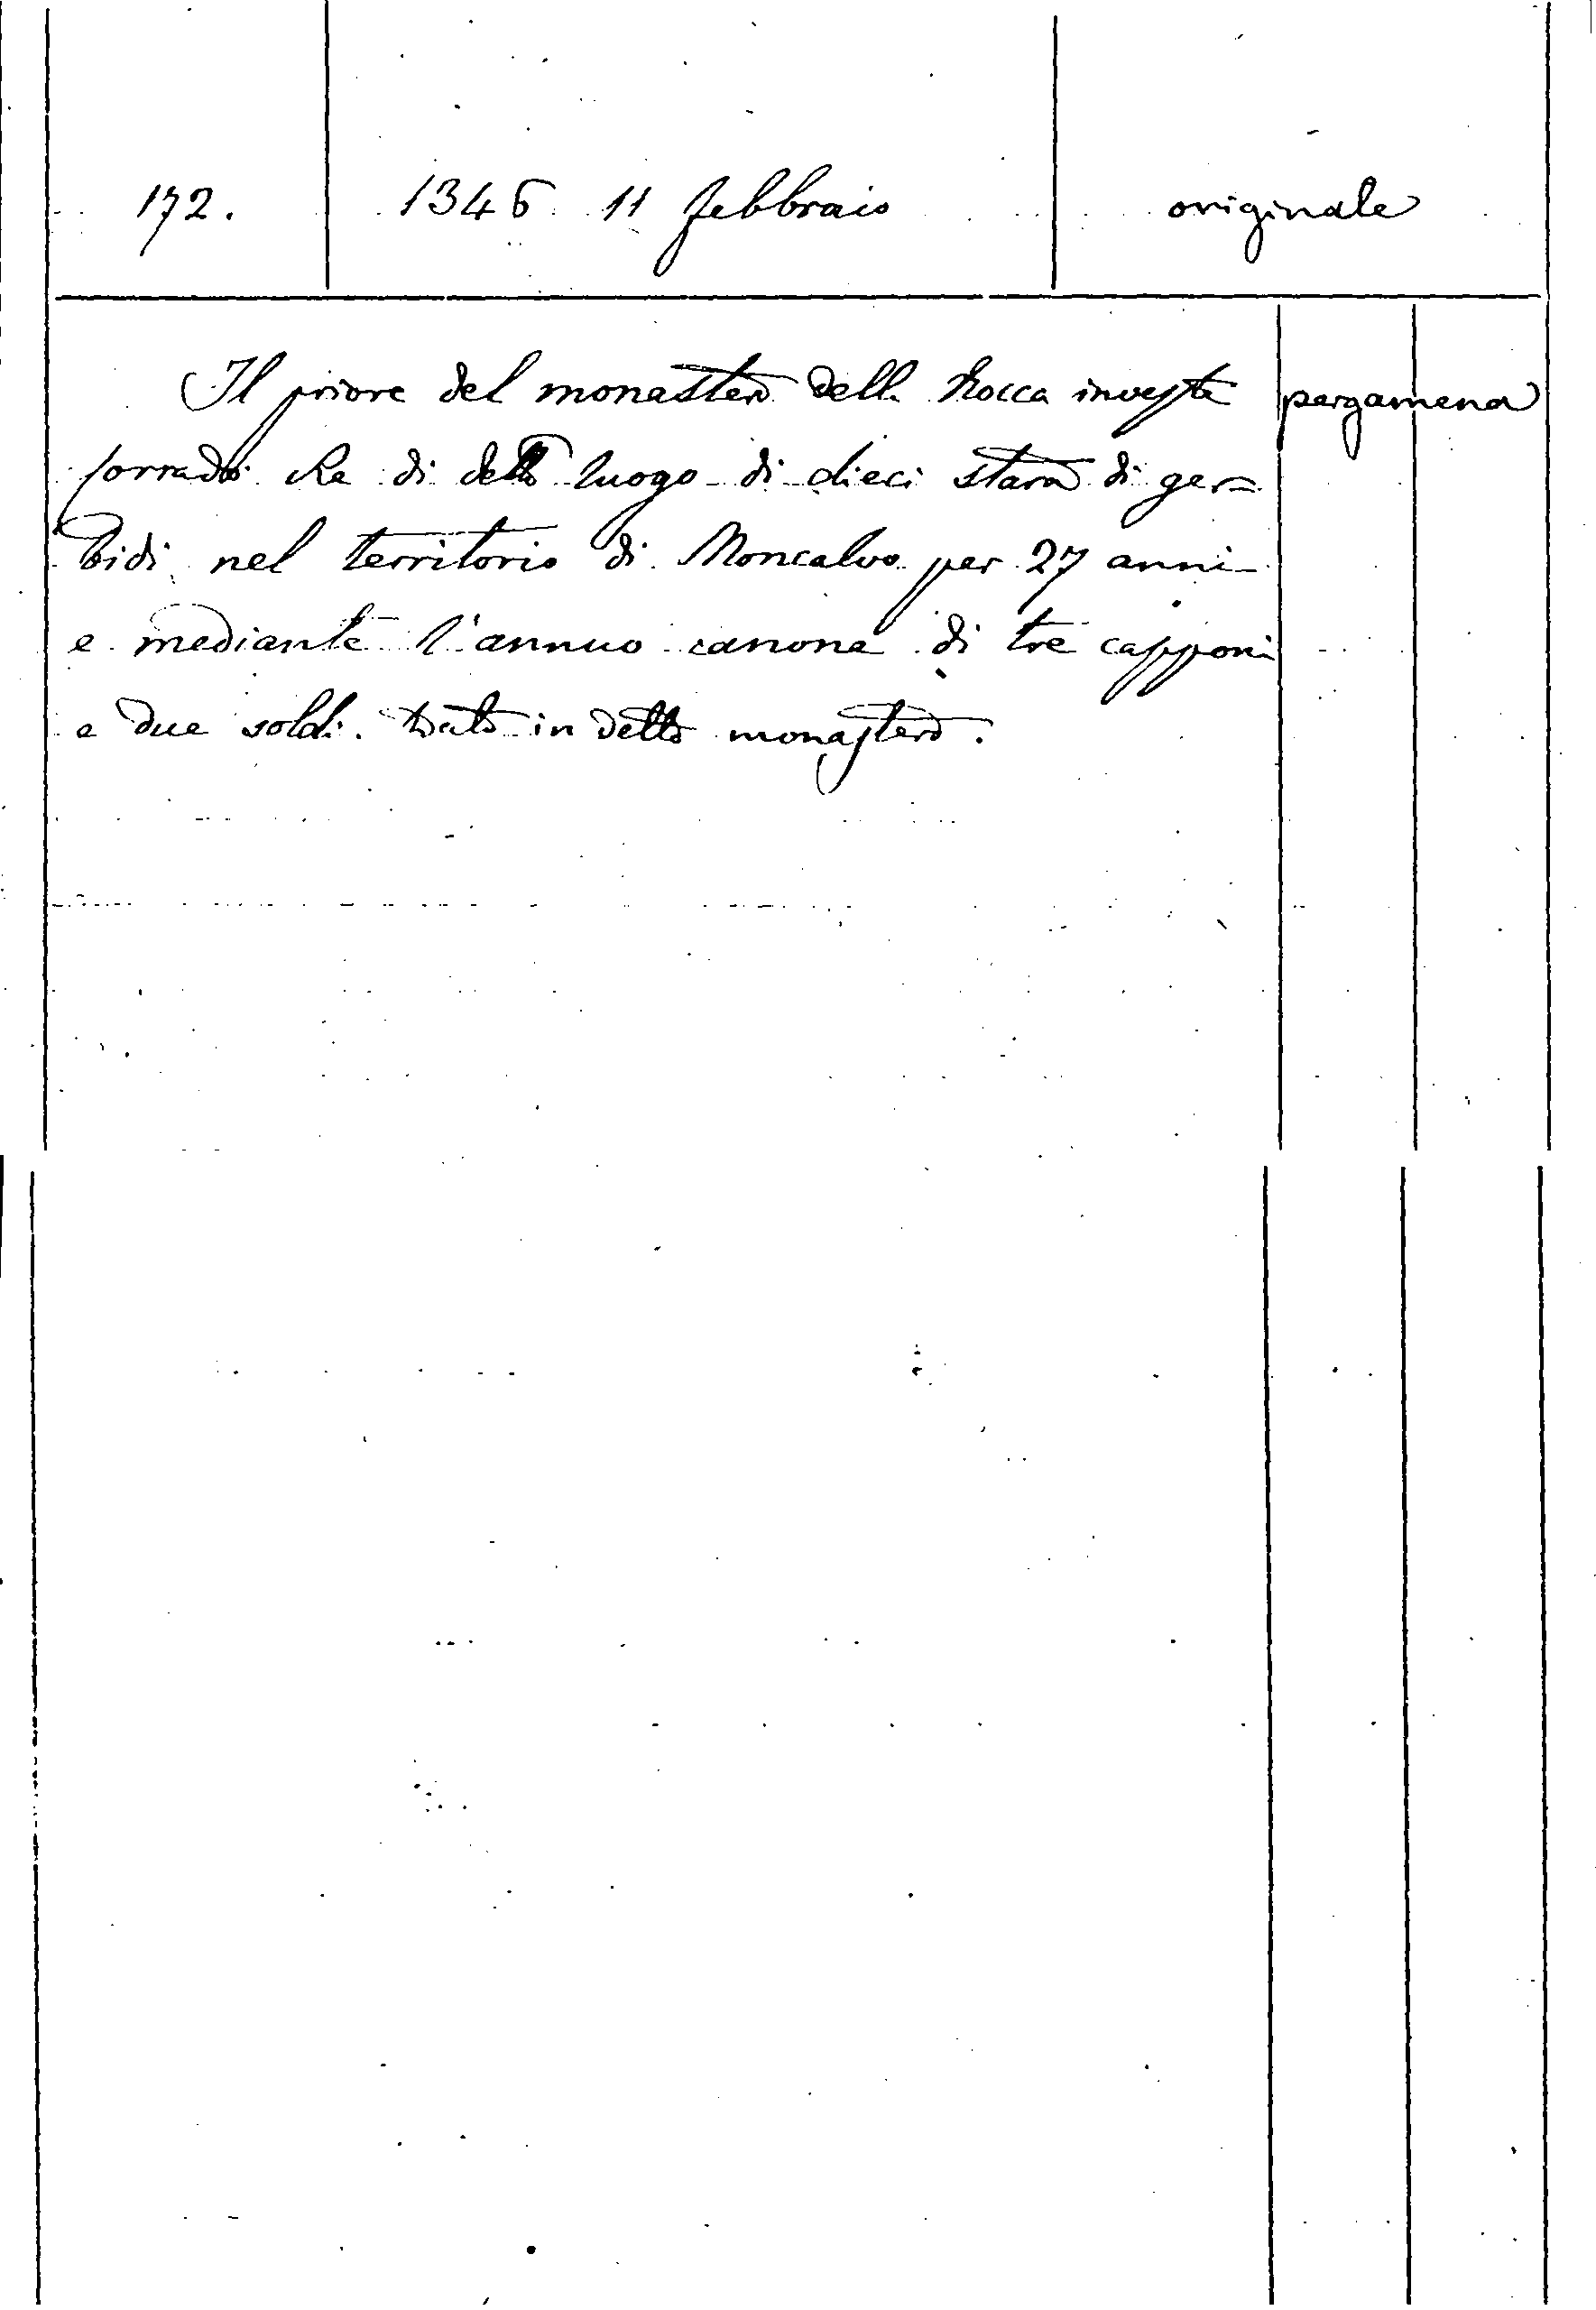 172.
1346 11 febbraio
originale
Il priore del monastero della Rocca investe
pergamena
Corrado Re di detto luogo di dieci stara di ger=
bidi nel territorio di Moncalvo per 27 anni
e mediante l'annuo canone di tre capponi
e due soldi. Dato in detto monastero.